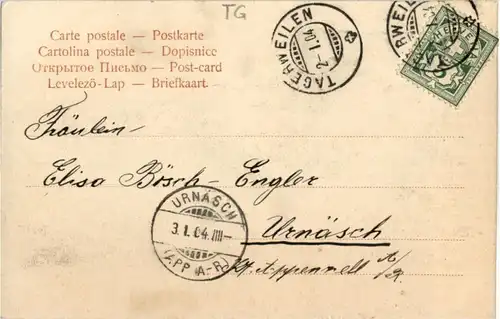 TG
Carte postale — Postkarte
Cartolina postale — Dopisnice
Открытое Письмо — Post-card
Levelező-Lap — Briefkaart.
TAGERWEILEN
2.I.04
ERWEILEN
Fräulein
Elisa Bösch-Engler
Urnäsch
Kt. Appenzell A/R
URNÄSCH
3.I.04.IIII-
(APP. A-R.)